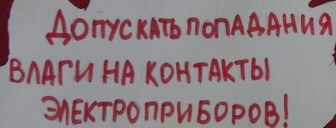 ДОПУСКАТЬ ПОПАДАНИЯ
ВЛАГИ НА КОНТАКТЫ
ЭЛЕКТРОПРИБОРОВ!